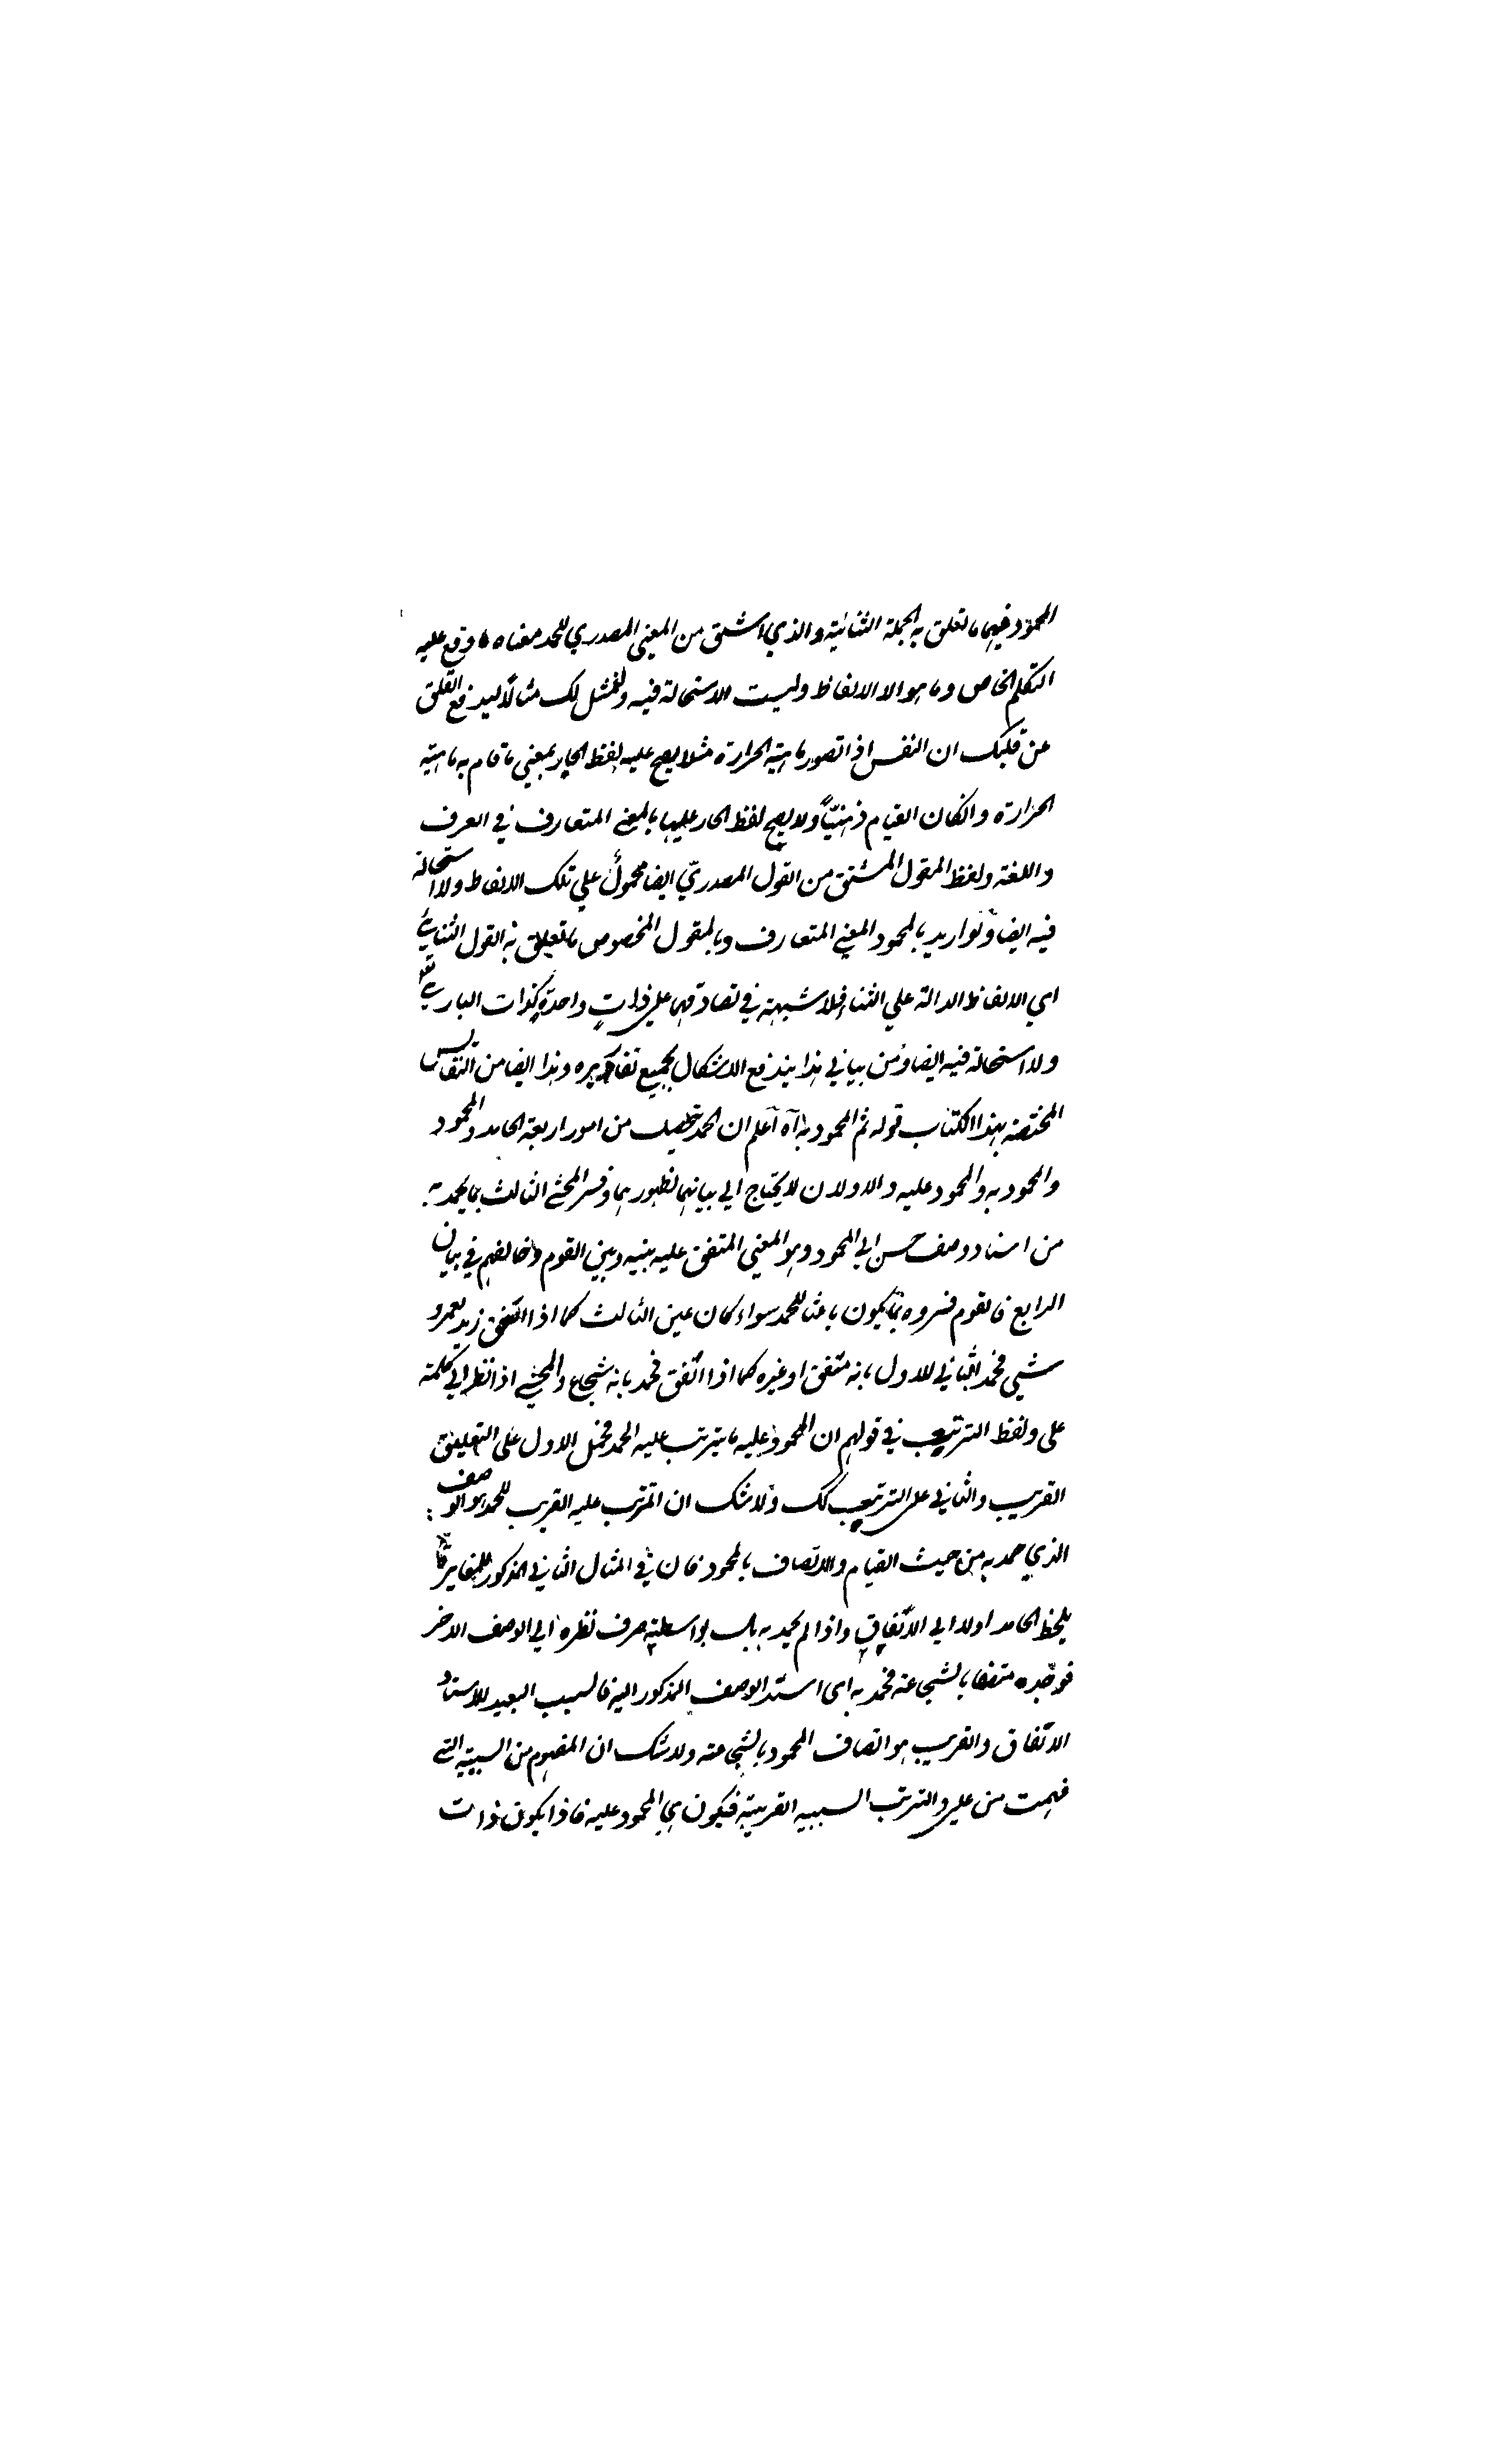 المحمود فيهما ما تعلق به الجملة الثنائية والذي اشتق من المعنى المصدري للحمد معناه ما وقع عليه
التكلم الخاص وما هو الا الالفاظ وليست الاستحالة فيه ولنمثل لك مثالا ليندفع القلق
عن قلبك ان النفس اذا تصور ماهية الحرارة مثلا يصح عليه لفظ الحار بمعنى ما قام به ماهية
الحرارة وان كان القيام ذهنيّاً ولا يصح لفظ الحار عليها بالمعنى المتعارف في العرف
واللغة ولفظ المقول المشتق من القول المصدريّ ايضا محمولٌ علي تلك الالفاظ ولا استحالة
فيه ايضا ولو اريد بالمحمود المعنى المتعارف وبالمقول المخصوص ما تعلق به القول الثنائي
اي الالفاظ الدالة علي الثناء فلا شبهة في تصادقهما على ذاتٍ واحدة كذات الباري تعالى
ولا استحالة فيه ايضا ومن بياني هذا يندفع الاشكال بجميع تقاريره وهذا ايضا من النفائس
المختصة بهذا الكتاب قوله ثم المحمود به آه اعلم ان الحمد تحصيل من امور اربعة الحامد والمحمود
والمحمود به والمحمود عليه والاولان لا يحتاج الي بيانهما لظهورهما وفسر المحشي الثالث بما يحمد به
من اسناد وصف حسن الي المحمود وهو المعنى المتفق عليه بينه وبين القوم وخالفهم في بيان
الرابع فالقوم فسروه بما يكون باعثا للحمد سواء كان عين الثالث كما اذا اتفق زيد لعمرو
شيئ فحمد الثاني للاول بانه متفق او غيره كما اذا اتفق فحمد بانه شجاع والمحشي اذا نظر الي كلمة
على ولفظ الترتيب في قولهم ان المحمود عليه ما يترتب عليه الحمد فحمل الاول على التعليق
القريب والثاني على الترتيب كك ولا شك ان المترتب عليه القريب للحمد هو الوصف
الذي حمد به من حيث القيام والاتصاف بالمحمود فان في المثال الثاني المذكور للمغايرة
يلحظ الحامد اولا الي الاتفاق واذا لم يحمد به بل بواسطته صرف نظره الي الوصف الاخر
فوجده متصفا بالشجاعة فحمد به اى اسند الوصف المذكور اليه فالسبب البعيد للاسناد
الاتفاق والقريب هو اتصاف المحمود بالشجاعة ولا شك ان المفهوم من السببية التي
فهمت من على والترتب السببية القريبة فيكون هي المحمود عليه فاذا يكون ذات